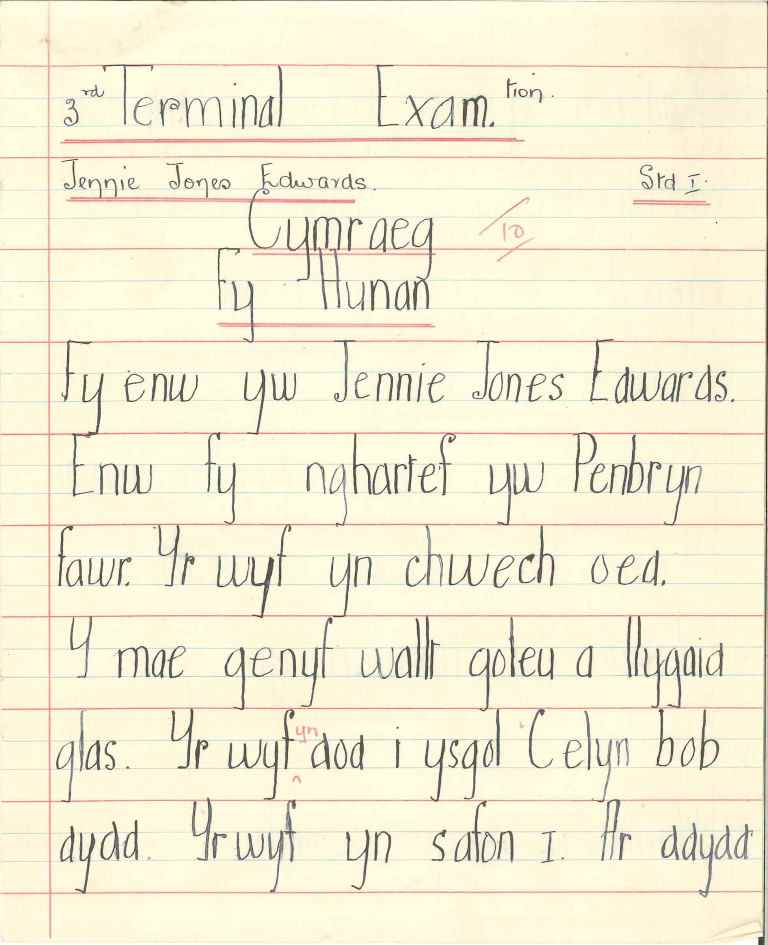 3rd Terminal Exam.tion.
Jennie Jones Edwards. Std I.
Cymraeg /10
Fy Hunan
Fy enw yw Jennie Jones Edwards.
Enw fy nghartef yw Penbryn
fawr. Yr wyf yn chwech oed.
Y mae genyf wallt goleu a llygaid
glas. Yr wyf yn dod i ysgol Celyn bob
dydd. Yr wyf yn safon I. Ar ddydd